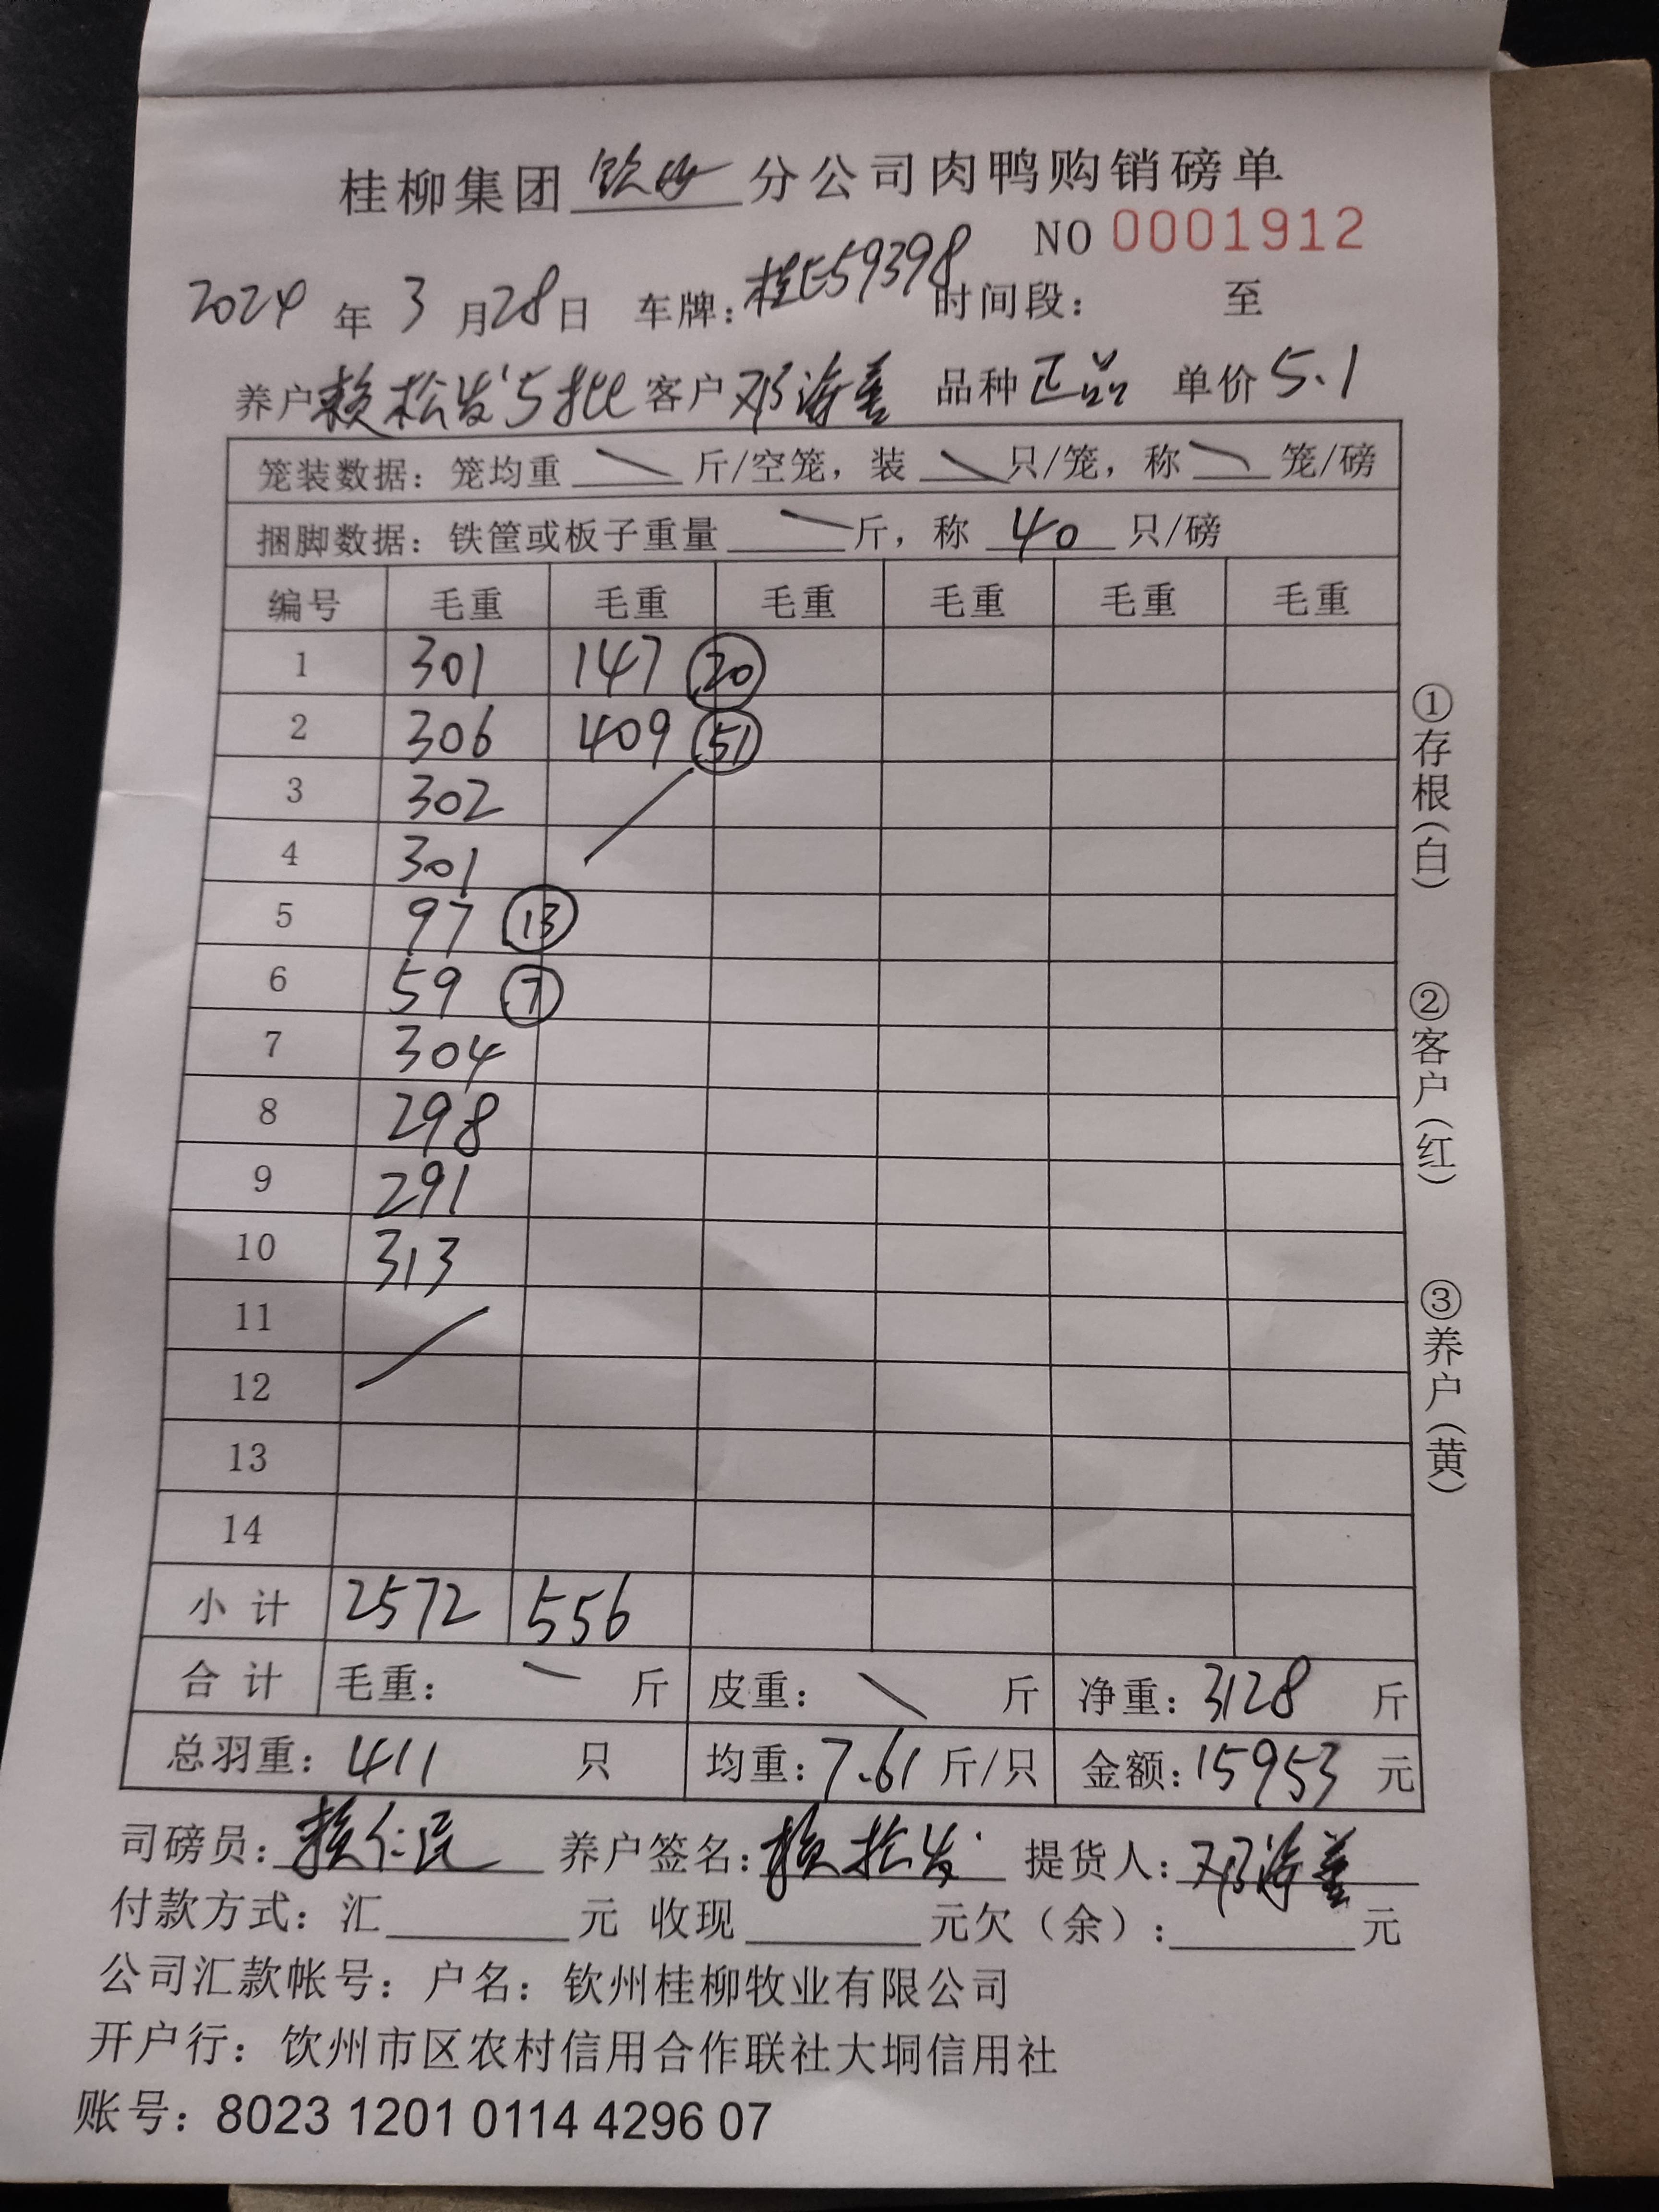 桂柳集团钦州分公司肉鸭购销磅单
NO 0001912
2024年3月28日 车牌:桂E59398 时间段: 至
养户赖松发5批 客户邓海善 品种正品 单价5.1
笼装数据:笼均重 斤/空笼,装 只/笼,称 笼/磅
捆脚数据:铁筐或板子重量 斤,称 40 只/磅
编号 毛重 毛重 毛重 毛重 毛重 毛重
1 301 147 20
2 306 409 51
3 302
4 301
5 97 13
6 59 7
7 304
8 298
9 291
10 313
11
12
13
14
小计 2572 556
合计 毛重: 斤 皮重: 斤 净重:3128 斤
总羽重:411 只 均重:7.61 斤/只 金额:15953 元
司磅员:赖仁 养户签名:赖松发 提货人:邓海善
付款方式:汇 元 收现 元欠(余): 元
公司汇款帐号:户名:钦州桂柳牧业有限公司
开户行:饮州市区农村信用合作联社大垌信用社
账号:8023 1201 0114 4296 07
①存根(白)
②客户(红)
③养户(黄)